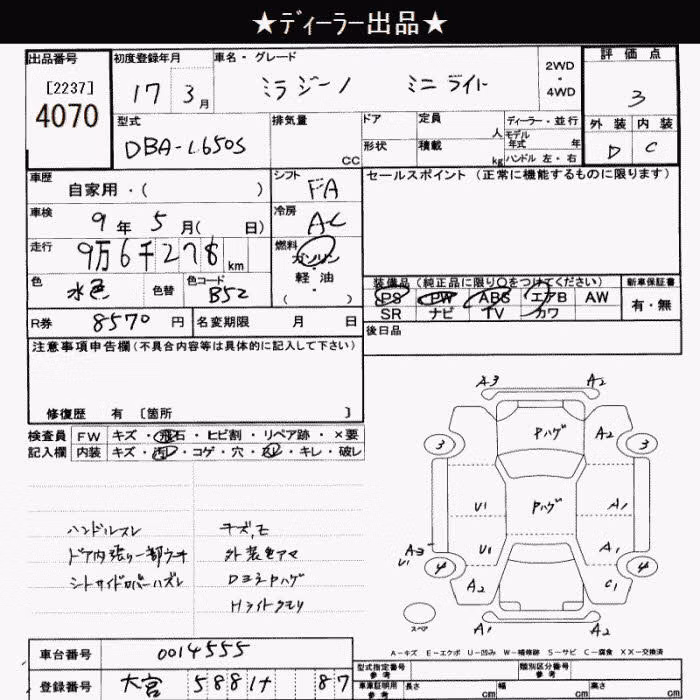 ★ディーラー出品★
出品番号
[2237]
4070
初度登録年月
17 3月
車名・グレード
ミラジーノ ミニライト
2WD
・
4WD
評価点
3
外装 内装
D C
型式
DBA-L650S
排気量
CC
ドア
形状
定員
人
積載
kg
ディーラー・並行
モデル
年式 年
ハンドル 左・右
車歴
自家用・( )
シフト
FA
セールスポイント (正常に機能するものに限ります)
車検
9年5月( 日)
冷房
AC
走行
9万6千278km
燃料
ガソリン
軽・油
( )
色
水色
色替
色コード
B52
装備品 (純正品に限り○をつけてください)
PS PW ABS エアB AW
SR ナビ TV カワ
新車保証書
有・無
R券 8570円
名変期限 月 日
後日品
注意事項申告欄(不具合内容等は具体的に記入して下さい)
修復歴 有 [箇所 ]
検査員
記入欄
FW キズ・飛石・ヒビ割・リペア跡・×要
内装 キズ・汚レ・コゲ・穴・スレ・キレ・破レ
ハンドルスレ
シートサイドカバーハズレ
外装色アセ
Hライトクモリ
A3 A2
3 Pハゲ A2 3
U1 Pハゲ A1
A3
U1
U1 A1
4 A2 C1 4
スペア
A1 A2
A-キズ E-エクボ U-凹み W-補修跡 S-サビ C-腐食 XX-交換済
車台番号 0014555
登録番号 大宮 588 け 87
型式指定番号
参考
類別区分番号
参考
車庫証明用
参考
長さ cm 幅 cm 高さ cm